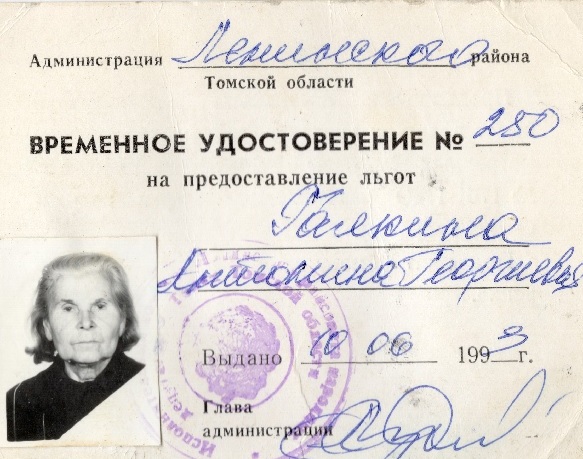 Администрация Ленинского района
Томской области
ВРЕМЕННОЕ УДОСТОВЕРЕНИЕ № 250
на предоставление льгот
Галкина
Антонина Георгиевна
Выдано 10 06 1993 г.
Глава
администрации